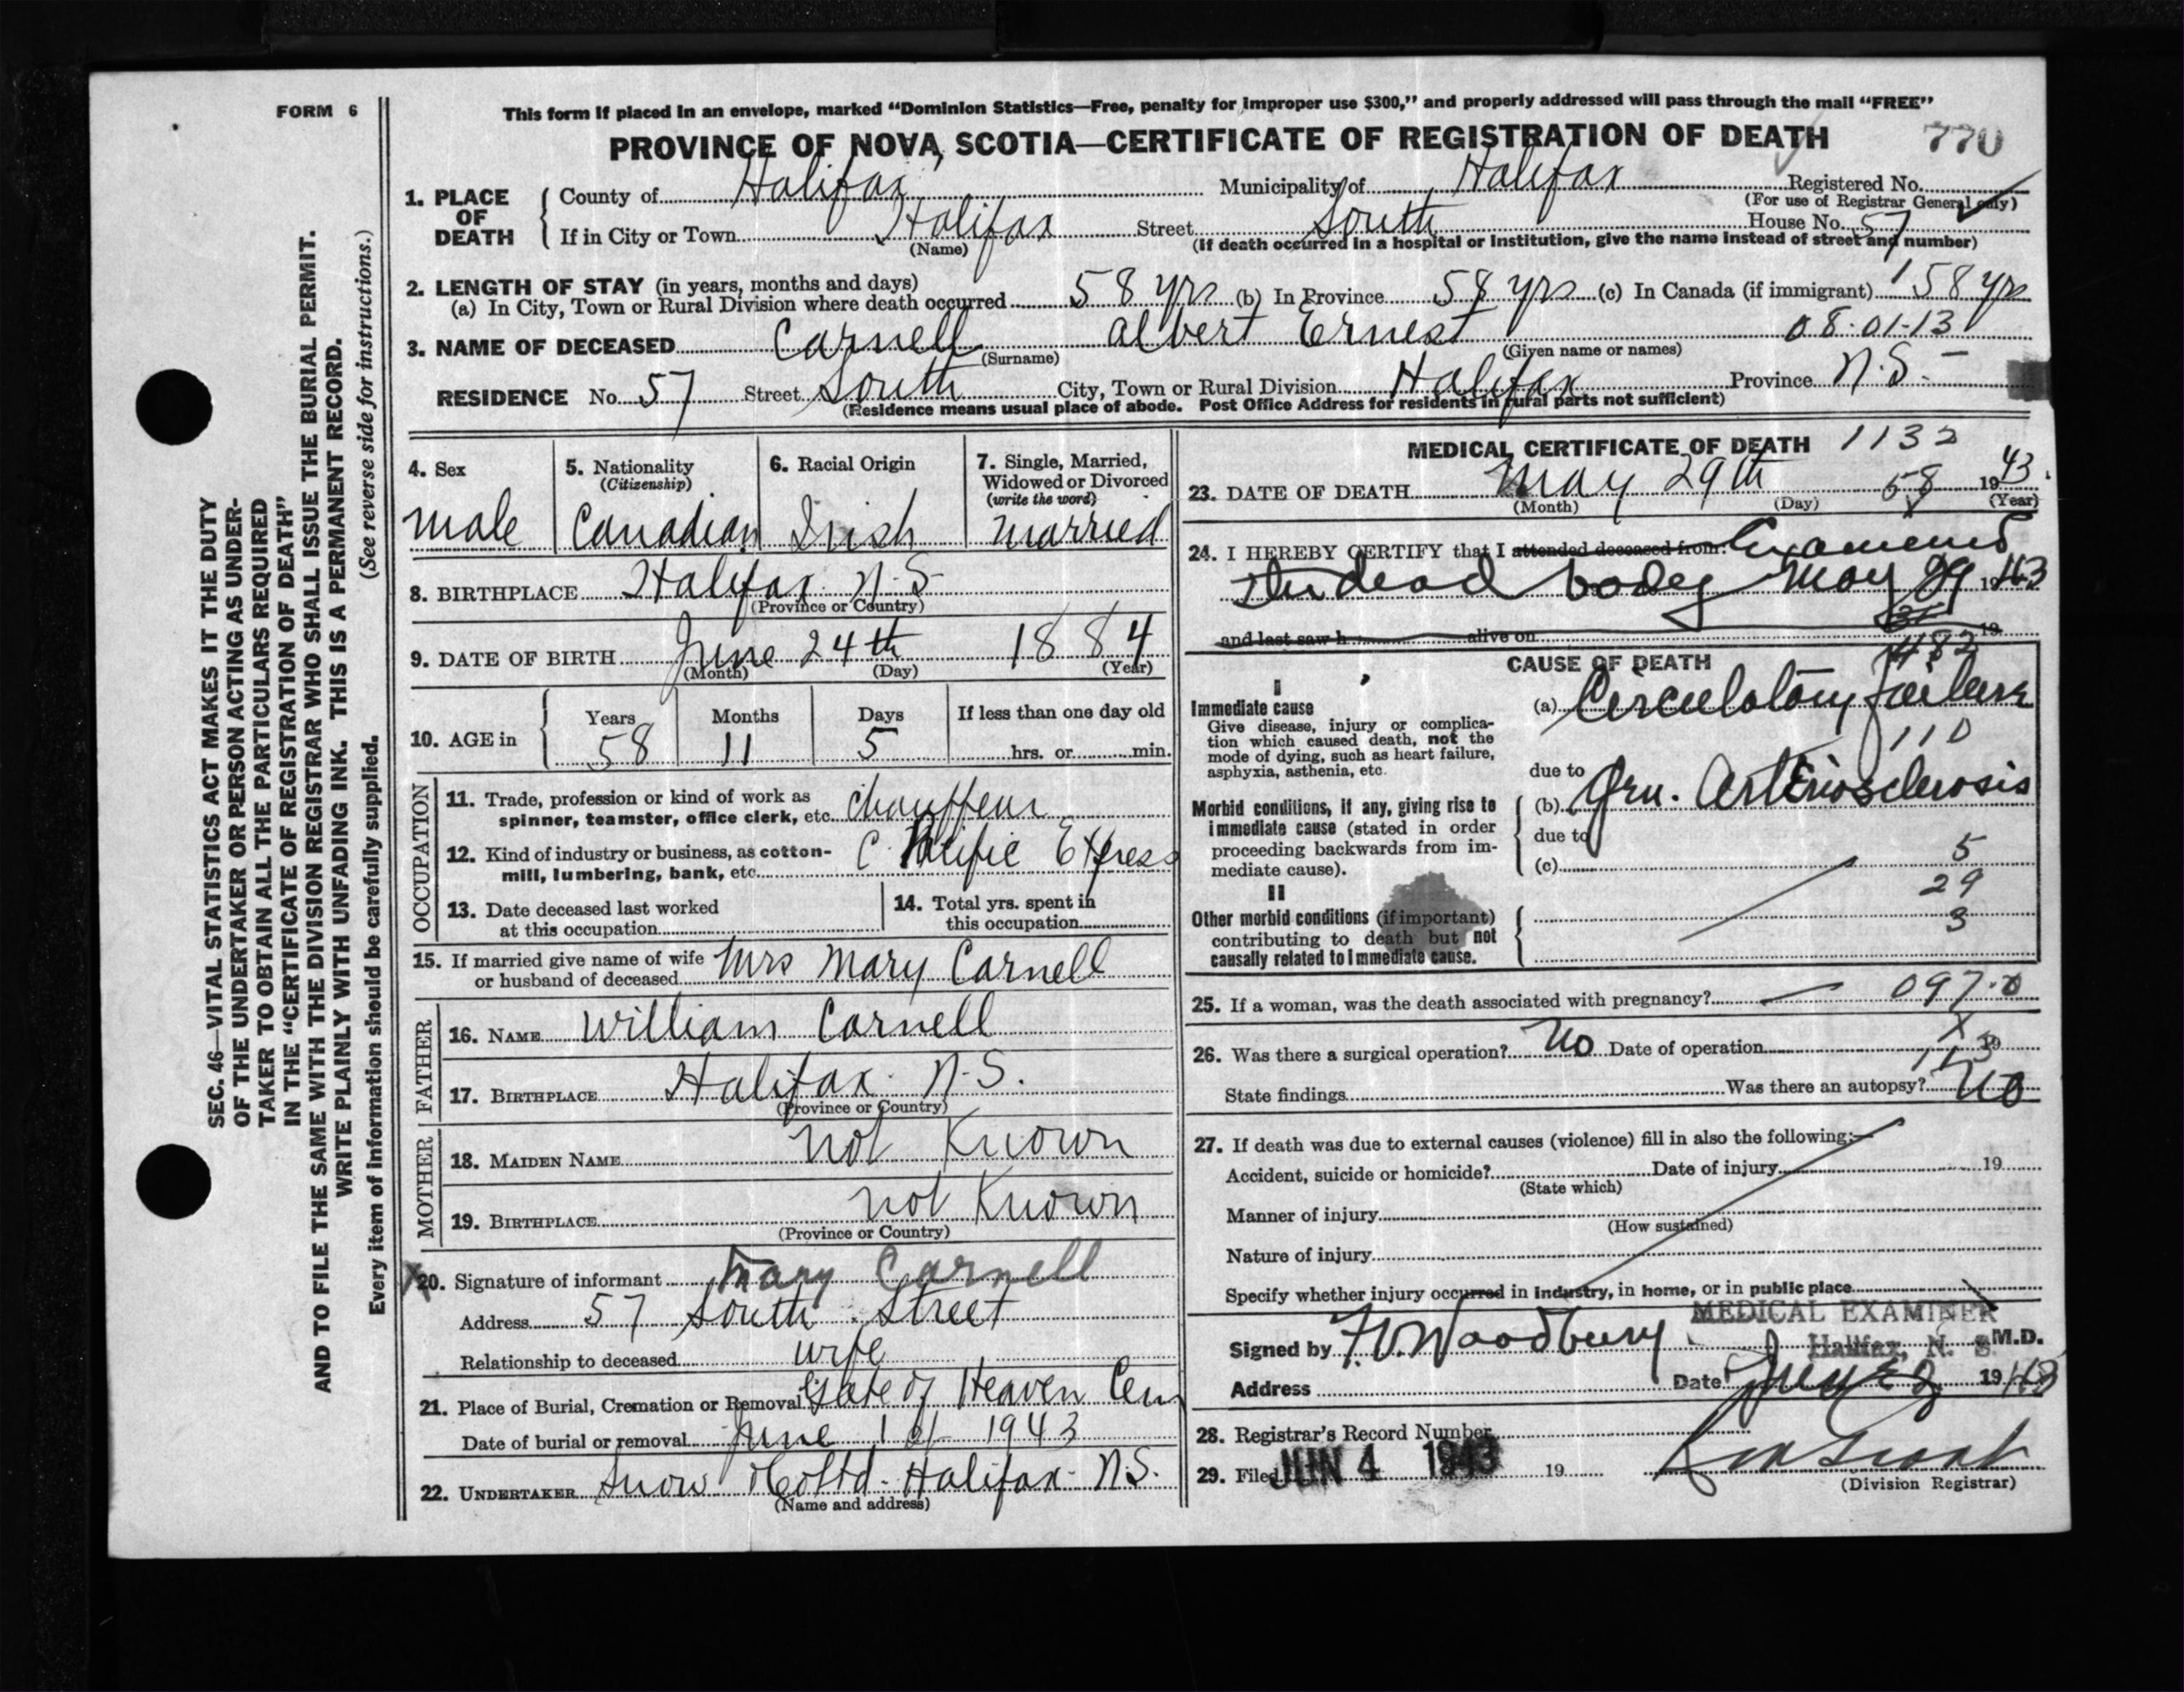 FORM 6
This form if placed in an envelope, marked "Dominion Statistics—Free, penalty for improper use $300," and properly addressed will pass through the mail "FREE"
PROVINCE OF NOVA SCOTIA—CERTIFICATE OF REGISTRATION OF DEATH 770
1. PLACE OF DEATH
County of Halifax Municipality of Halifax Registered No.
(For use of Registrar General only)
If in City or Town Halifax Street South House No. 57
(Name) (If death occurred in a hospital or institution, give the name instead of street and number)
2. LENGTH OF STAY (in years, months and days)
(a) In City, Town or Rural Division where death occurred 58 yrs (b) In Province 58 yrs (c) In Canada (if immigrant) 58 yrs
3. NAME OF DECEASED Carnell albert Ernest 08-01-13
(Surname) (Given name or names)
RESIDENCE No. 57 Street South City, Town or Rural Division Halifax Province N.S.
(Residence means usual place of abode. Post Office Address for residents in rural parts not sufficient)
SEC. 46—VITAL STATISTICS ACT MAKES IT THE DUTY
OF THE UNDERTAKER OR PERSON ACTING AS UNDER-
TAKER TO OBTAIN ALL THE PARTICULARS REQUIRED
IN THE "CERTIFICATE OF REGISTRATION OF DEATH"
AND TO FILE THE SAME WITH THE DIVISION REGISTRAR WHO SHALL ISSUE THE BURIAL PERMIT.
WRITE PLAINLY WITH UNFADING INK. THIS IS A PERMANENT RECORD.
Every item of information should be carefully supplied. (See reverse side for instructions.)
4. Sex
male
5. Nationality
(Citizenship)
Canadian
6. Racial Origin
Irish
7. Single, Married,
Widowed or Divorced
(write the word)
married
8. BIRTHPLACE Halifax N.S
(Province or Country)
9. DATE OF BIRTH June 24th 1884
(Month) (Day) (Year)
10. AGE in
Years Months Days If less than one day old
58 11 5 hrs. or min.
OCCUPATION
11. Trade, profession or kind of work as
spinner, teamster, office clerk, etc. chauffeur
12. Kind of industry or business, as cotton-
mill, lumbering, bank, etc. C. Pacific Express
13. Date deceased last worked
at this occupation
14. Total yrs. spent in
this occupation
15. If married give name of wife
or husband of deceased Mrs Mary Carnell
FATHER
16. NAME William Carnell
17. BIRTHPLACE Halifax N.S.
(Province or Country)
MOTHER
18. MAIDEN NAME not Known
19. BIRTHPLACE not Known
(Province or Country)
X20. Signature of informant Mary Carnell
Address 57 South Street
Relationship to deceased wife
21. Place of Burial, Cremation or Removal Gate of Heaven Cem
Date of burial or removal June 1st 1943
22. UNDERTAKER Snow & Co Ltd - Halifax - N.S.
(Name and address)
MEDICAL CERTIFICATE OF DEATH 1132
23. DATE OF DEATH May 29th 58 1943
(Month) (Day) (Year)
24. I HEREBY CERTIFY that I attended deceased from: Examined
the dead body May 29 1943
and last saw h alive on 19
CAUSE OF DEATH
I
Immediate cause
Give disease, injury or complica-
tion which caused death, not the
mode of dying, such as heart failure,
asphyxia, asthenia, etc.
(a) Circulatory failure
110
due to
Morbid conditions, if any, giving rise to
immediate cause (stated in order
proceeding backwards from im-
mediate cause).
(b) Gen. Arteriosclerosis
due to
(c)
5
29
3
II
Other morbid conditions (if important)
contributing to death but not
causally related to immediate cause.
25. If a woman, was the death associated with pregnancy? — 097.0
26. Was there a surgical operation? No Date of operation 19
State findings Was there an autopsy? No
27. If death was due to external causes (violence) fill in also the following:—
Accident, suicide or homicide? Date of injury 19
(State which)
Manner of injury
(How sustained)
Nature of injury
Specify whether injury occurred in industry, in home, or in public place
MEDICAL EXAMINER
Halifax, N. S.
Signed by F.V. Woodbury M.D.
Address Date June 2 1943
28. Registrar's Record Number
29. Filed JUN 4 1943 19
(Division Registrar)